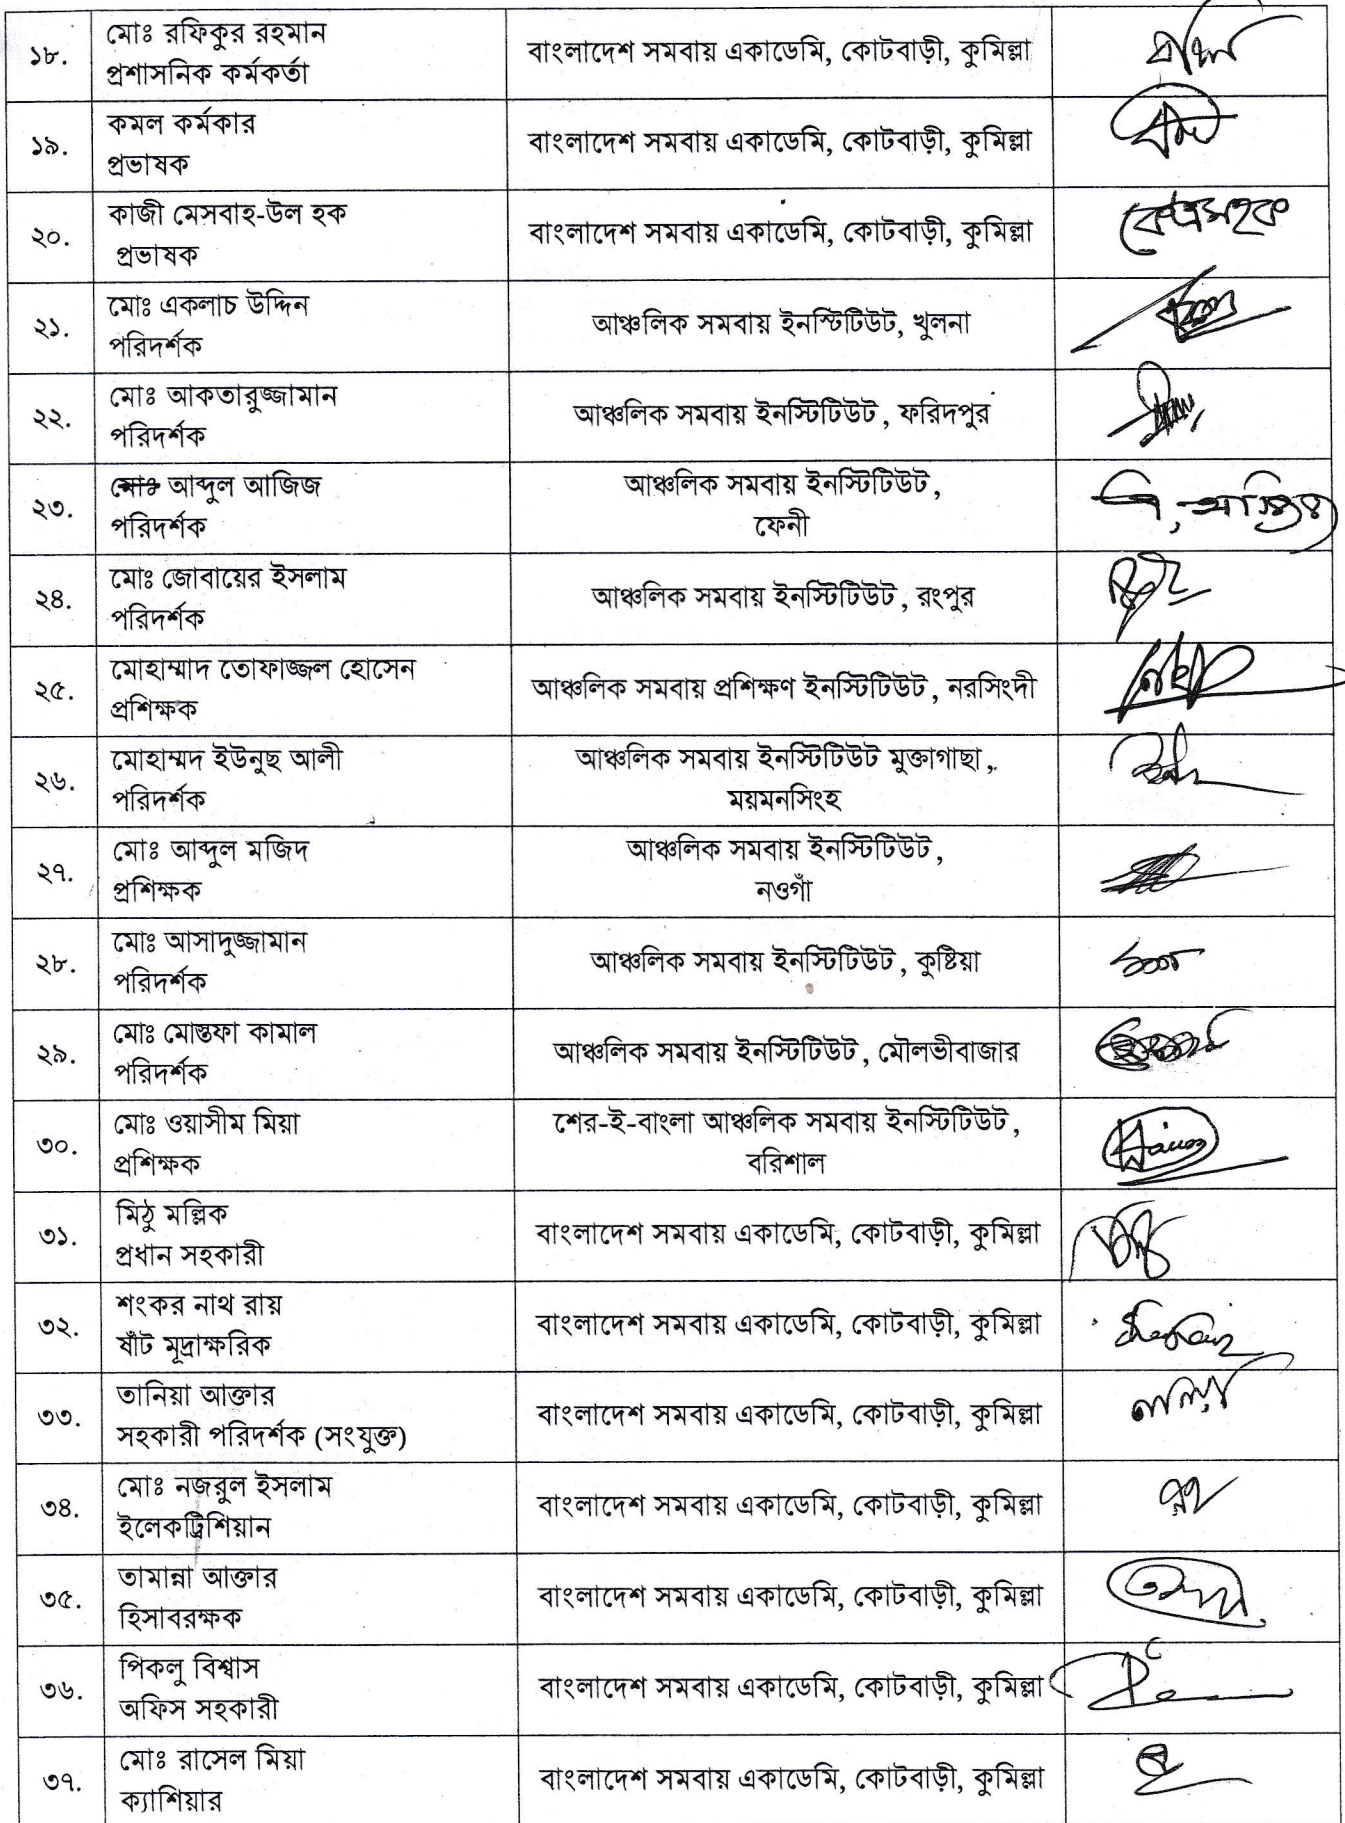 ১৮.
মোঃ রফিকুর রহমান
প্রশাসনিক কর্মকর্তা
বাংলাদেশ সমবায় একাডেমি, কোটবাড়ী, কুমিল্লা
১৯.
কমল কর্মকার
প্রভাষক
বাংলাদেশ সমবায় একাডেমি, কোটবাড়ী, কুমিল্লা
২০.
কাজী মেসবাহ-উল হক
প্রভাষক
বাংলাদেশ সমবায় একাডেমি, কোটবাড়ী, কুমিল্লা
২১.
মোঃ একলাচ উদ্দিন
পরিদর্শক
আঞ্চলিক সমবায় ইনস্টিটিউট, খুলনা
২২.
মোঃ আকতারুজ্জামান
পরিদর্শক
আঞ্চলিক সমবায় ইনস্টিটিউট, ফরিদপুর
২৩.
মোঃ আব্দুল আজিজ
পরিদর্শক
আঞ্চলিক সমবায় ইনস্টিটিউট,
ফেনী
২৪.
মোঃ জোবায়ের ইসলাম
পরিদর্শক
আঞ্চলিক সমবায় ইনস্টিটিউট, রংপুর
২৫.
মোহাম্মাদ তোফাজ্জল হোসেন
প্রশিক্ষক
আঞ্চলিক সমবায় প্রশিক্ষণ ইনস্টিটিউট, নরসিংদী
২৬.
মোহাম্মদ ইউনুছ আলী
পরিদর্শক
আঞ্চলিক সমবায় ইনস্টিটিউট মুক্তাগাছা,
ময়মনসিংহ
২৭.
মোঃ আব্দুল মজিদ
প্রশিক্ষক
আঞ্চলিক সমবায় ইনস্টিটিউট,
নওগাঁ
২৮.
মোঃ আসাদুজ্জামান
পরিদর্শক
আঞ্চলিক সমবায় ইনস্টিটিউট, কুষ্টিয়া
২৯.
মোঃ মোস্তফা কামাল
পরিদর্শক
আঞ্চলিক সমবায় ইনস্টিটিউট, মৌলভীবাজার
৩০.
মোঃ ওয়াসীম মিয়া
প্রশিক্ষক
শের-ই-বাংলা আঞ্চলিক সমবায় ইনস্টিটিউট,
বরিশাল
৩১.
মিঠু মল্লিক
প্রধান সহকারী
বাংলাদেশ সমবায় একাডেমি, কোটবাড়ী, কুমিল্লা
৩২.
শংকর নাথ রায়
ষাঁট মূদ্রাক্ষরিক
বাংলাদেশ সমবায় একাডেমি, কোটবাড়ী, কুমিল্লা
৩৩.
তানিয়া আক্তার
সহকারী পরিদর্শক (সংযুক্ত)
বাংলাদেশ সমবায় একাডেমি, কোটবাড়ী, কুমিল্লা
৩৪.
মোঃ নজরুল ইসলাম
ইলেকট্রিশিয়ান
বাংলাদেশ সমবায় একাডেমি, কোটবাড়ী, কুমিল্লা
৩৫.
তামান্না আক্তার
হিসাবরক্ষক
বাংলাদেশ সমবায় একাডেমি, কোটবাড়ী, কুমিল্লা
৩৬.
পিকলু বিশ্বাস
অফিস সহকারী
বাংলাদেশ সমবায় একাডেমি, কোটবাড়ী, কুমিল্লা
৩৭.
মোঃ রাসেল মিয়া
ক্যাশিয়ার
বাংলাদেশ সমবায় একাডেমি, কোটবাড়ী, কুমিল্লা